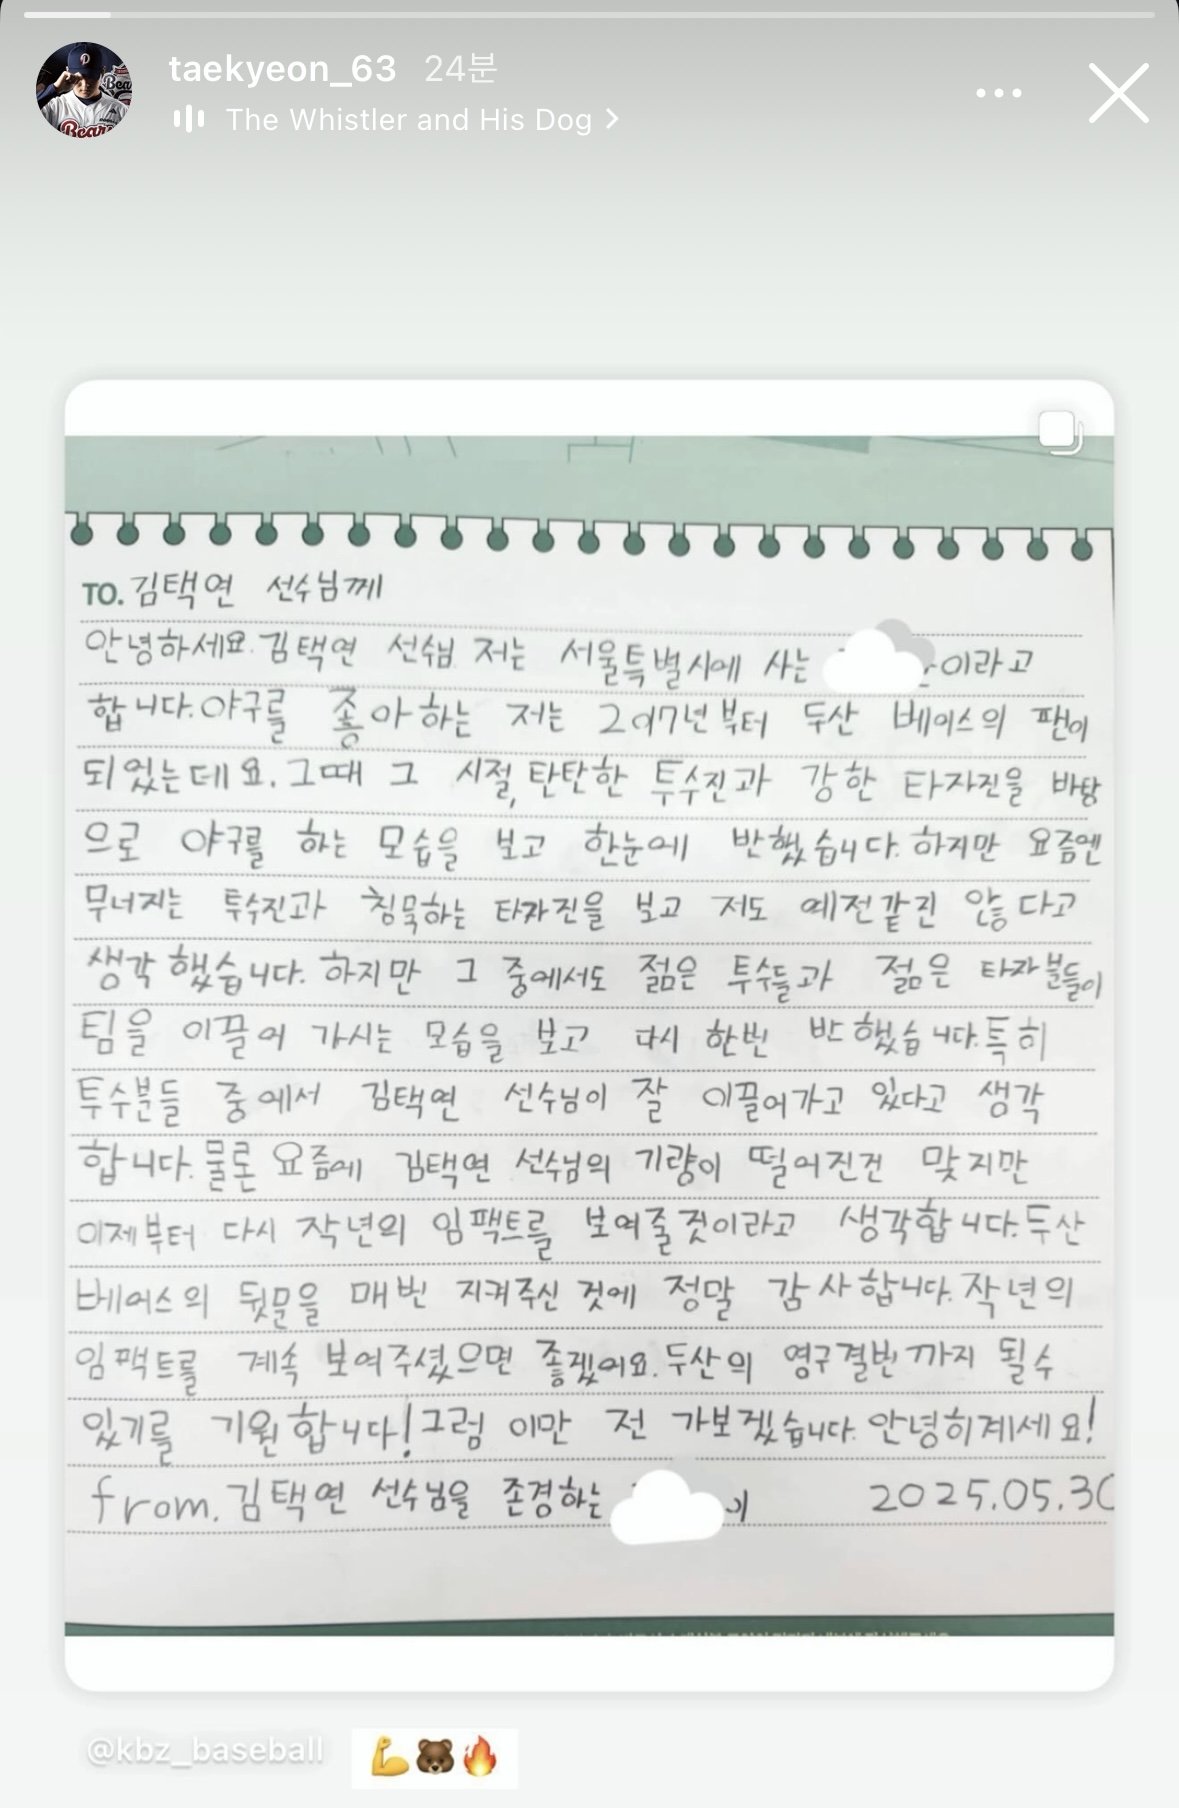 taekyeon_63 24분
The Whistler and His Dog
TO. 김택연 선수님께
안녕하세요. 김택연 선수님 저는 서울특별시에 사는 이라고
합니다. 야구를 좋아하는 저는 2017년부터 두산 베어스의 팬이
되었는데요. 그때 그 시절, 탄탄한 투수진과 강한 타자진을 바탕
으로 야구를 하는 모습을 보고 한눈에 반했습니다. 하지만 요즘엔
무너지는 투수진과 침묵하는 타자진을 보고 저도 예전같진 않다고
생각했습니다. 하지만 그 중에서도 젊은 투수들과 젊은 타자분들이
팀을 이끌어 가시는 모습을 보고 다시 한번 반했습니다. 특히
투수분들 중에서 김택연 선수님이 잘 이끌어가고 있다고 생각
합니다. 물론 요즘에 김택연 선수님의 기량이 떨어진건 맞지만
이제부터 다시 작년의 임팩트를 보여줄것이라고 생각합니다. 두산
베어스의 뒷문을 매번 지켜주신 것에 정말 감사합니다. 작년의
임팩트를 계속 보여주셨으면 좋겠어요. 두산의 영구결번까지 될수
있기를 기원합니다! 그럼 이만 전 가보겠습니다. 안녕히계세요!
from. 김택연 선수님을 존경하는 2025.05.30
@kbz_baseball